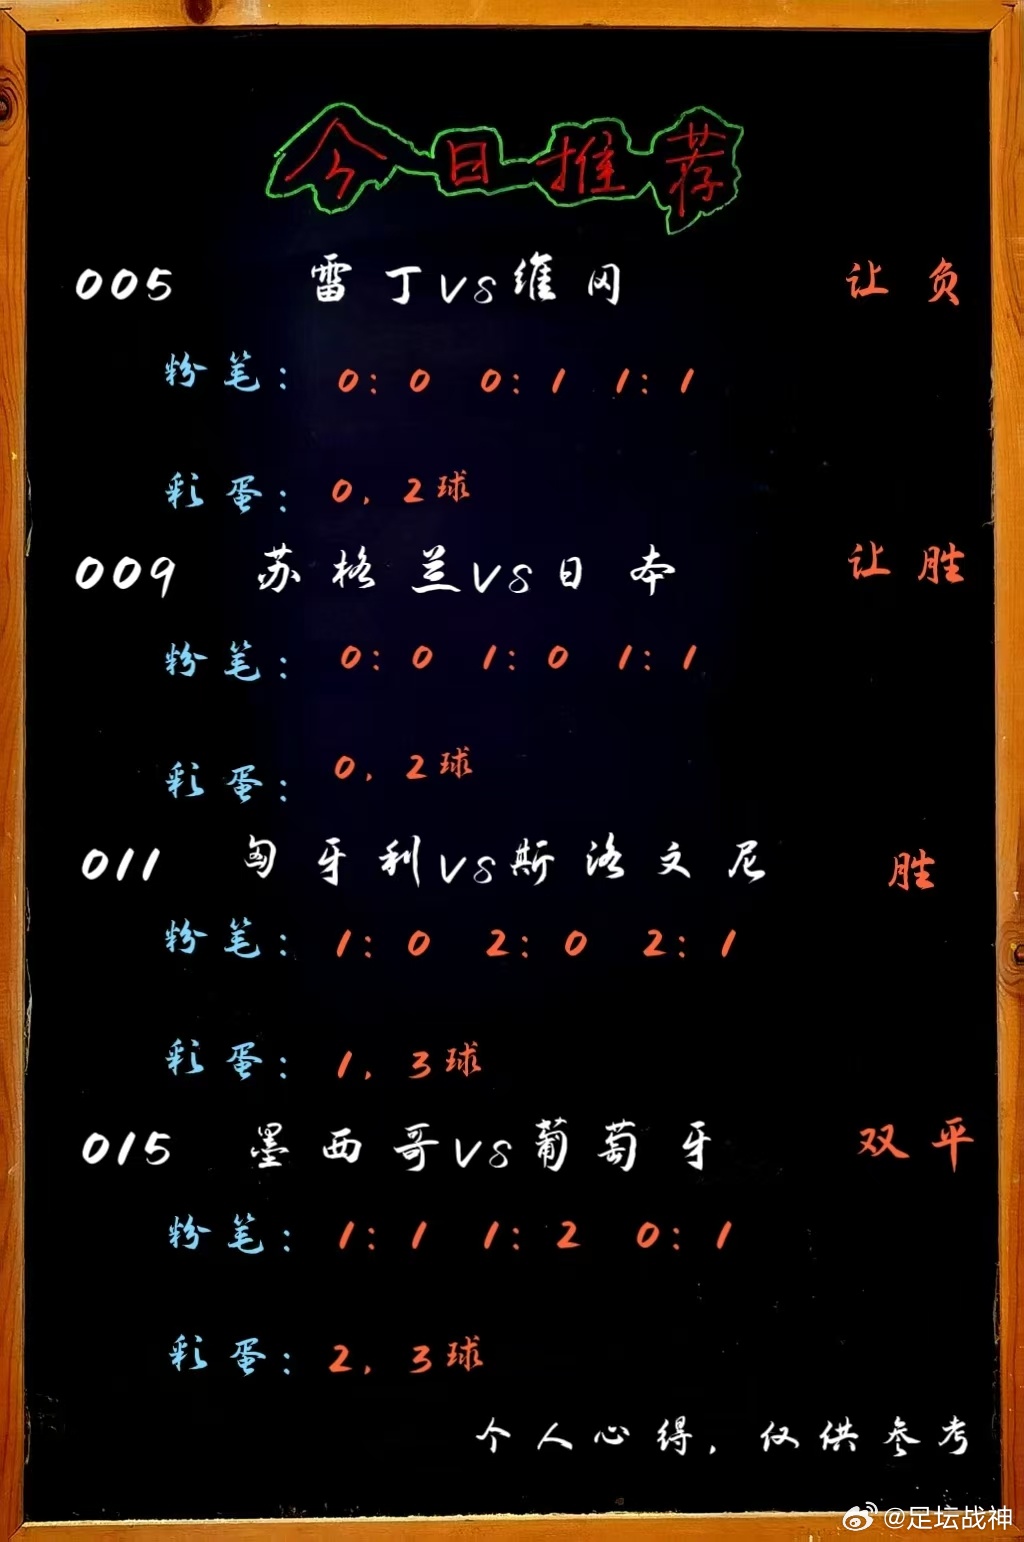 今日推荐
005 雷丁vs维冈 让负
粉笔: 0:0 0:1 1:1
彩蛋: 0, 2球
009 苏格兰vs日本 让胜
粉笔: 0:0 1:0 1:1
彩蛋: 0, 2球
011 匈牙利vs斯洛文尼 胜
粉笔: 1:0 2:0 2:1
彩蛋: 1, 3球
015 墨西哥vs葡萄牙 双平
粉笔: 1:1 1:2 0:1
彩蛋: 2, 3球
个人心得, 仅供参考
@足坛战神